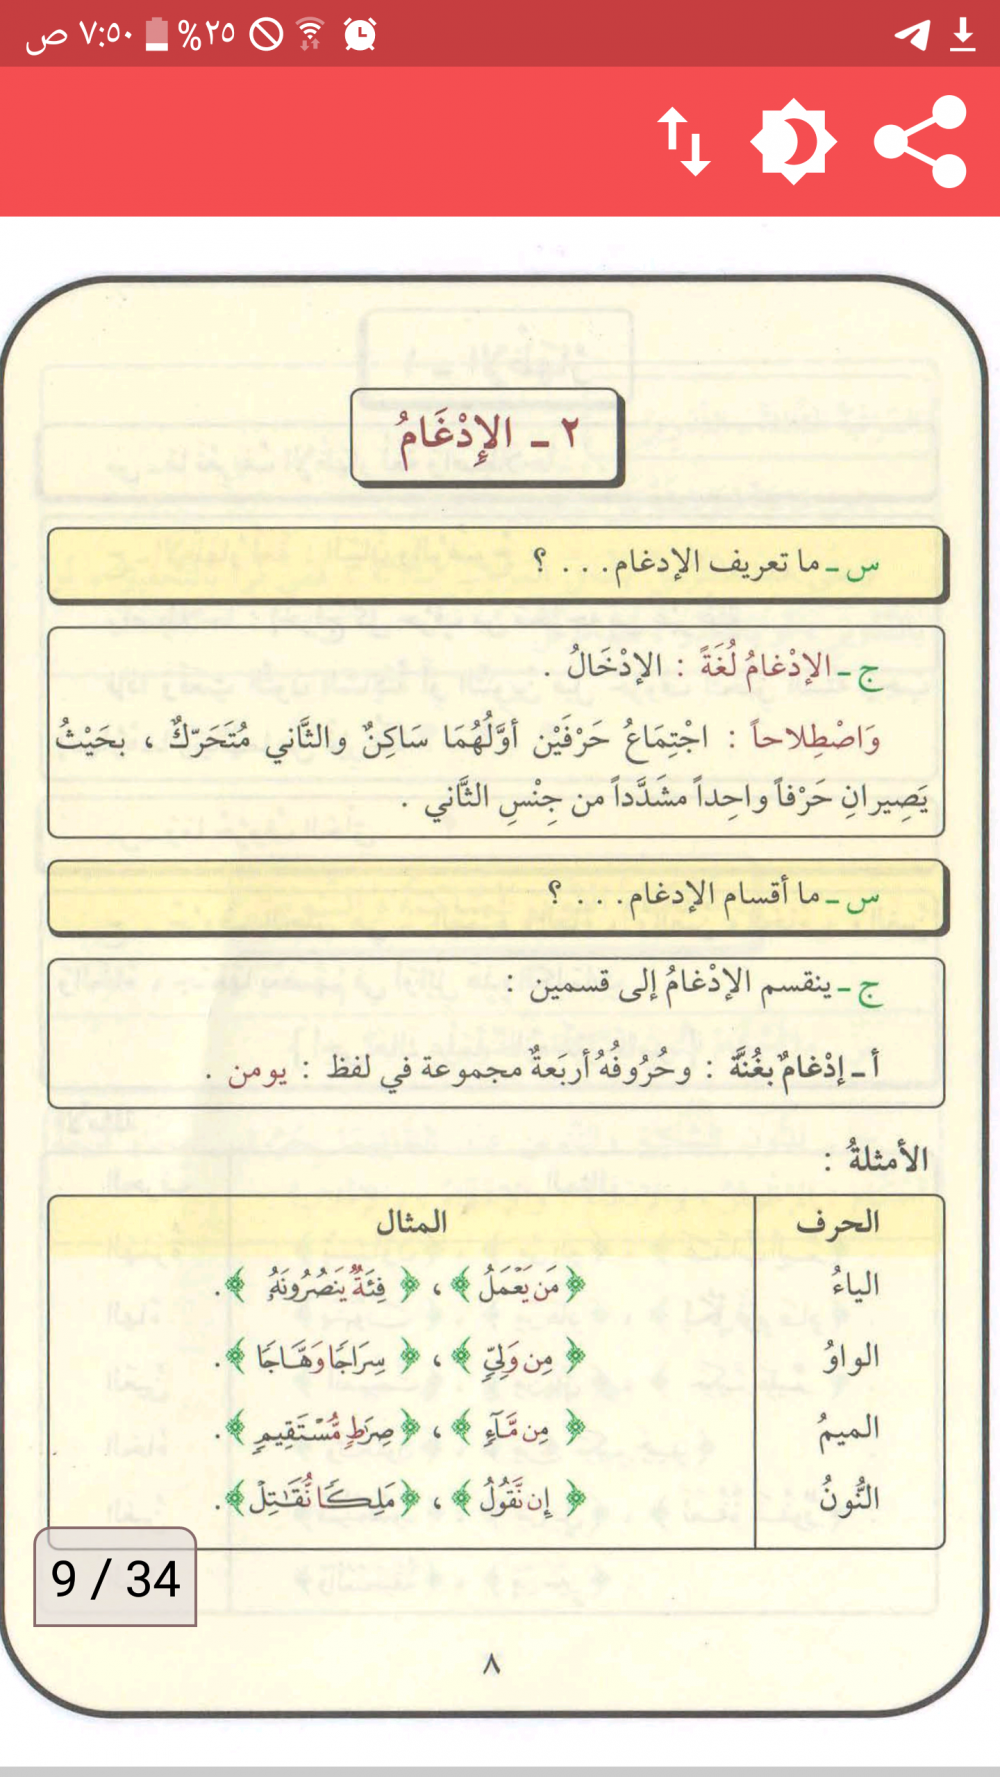 ٧:٥٠ ص ٢٥%
٢ - الإِدْغَامُ
س - ما تعريف الإدغام. . . ؟
ج - الإِدْغَامُ لُغَةً : الإِدْخَالُ .
وَاصْطِلاحاً : اجْتِمَاعُ حَرْفَيْن أوَّلُهُمَا سَاكِنٌ والثَّاني مُتَحَرّكٌ ، بحَيْثُ
يَصِيرانِ حَرْفاً واحِداً مشَدَّداً من جِنْسِ الثَّاني .
س - ما أقسام الإدغام. . . ؟
ج - ينقسم الإدْغامُ إلى قسمين :
أ - إدْغامٌ بغُنَّة : وحُرُوفُهُ أربَعةٌ مجموعة في لفظ : يومن .
الأمثلةُ :
الحرف المثال
الياءُ ﴿ مَن يَعْمَلُ ﴾ ، ﴿ فِئَةٌ يَنصُرُونَهُ ﴾ .
الواوُ ﴿ مِن وَلِيٍّ ﴾ ، ﴿ سِرَاجًا وَهَّاجًا ﴾ .
الميمُ ﴿ مِن مَّآءٍ ﴾ ، ﴿ صِرَٰطٍ مُّسْتَقِيمٍ ﴾ .
النُّونُ ﴿ إِن نَّقُولُ ﴾ ، ﴿ مَلِكًا نُّقَٰتِلْ ﴾ .
9 / 34
٨